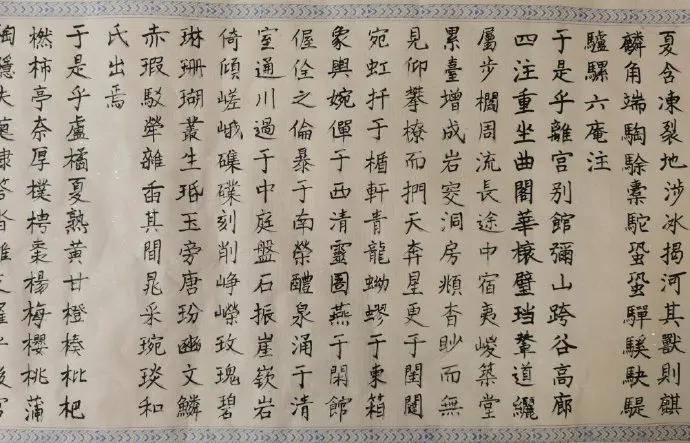 夏含凍裂地涉冰揭河其獸則麒
麟角端騊駼橐駝蛩蛩驒騱駃騠
驢騾六庵注
于是乎離宮别館彌山跨谷高廊
四注重坐曲閣華榱璧珰輦道纚
屬步櫩周流長途中宿夷嵏築堂
累臺增成岩窔洞房頫杳眇而無
見仰攀橑而捫天奔星更于閨闥
宛虹扦于楯軒青龍蚴蟉于東箱
象輿婉僤于西清靈圄燕于閑館
偓佺之倫暴于南榮醴泉涌于清
室通川過于中庭盤石振崖嵚岩
倚傾嵯峨磼礏刻削崢嶸玫瑰碧
琳珊瑚叢生珉玉旁唐玢豳文鱗
赤瑕駁犖雜臿其間晁采琬琰和
氏出焉
于是乎盧橘夏熟黄甘橙楱枇杷
橪柿亭奈厚樸梬棗楊梅櫻桃蒲